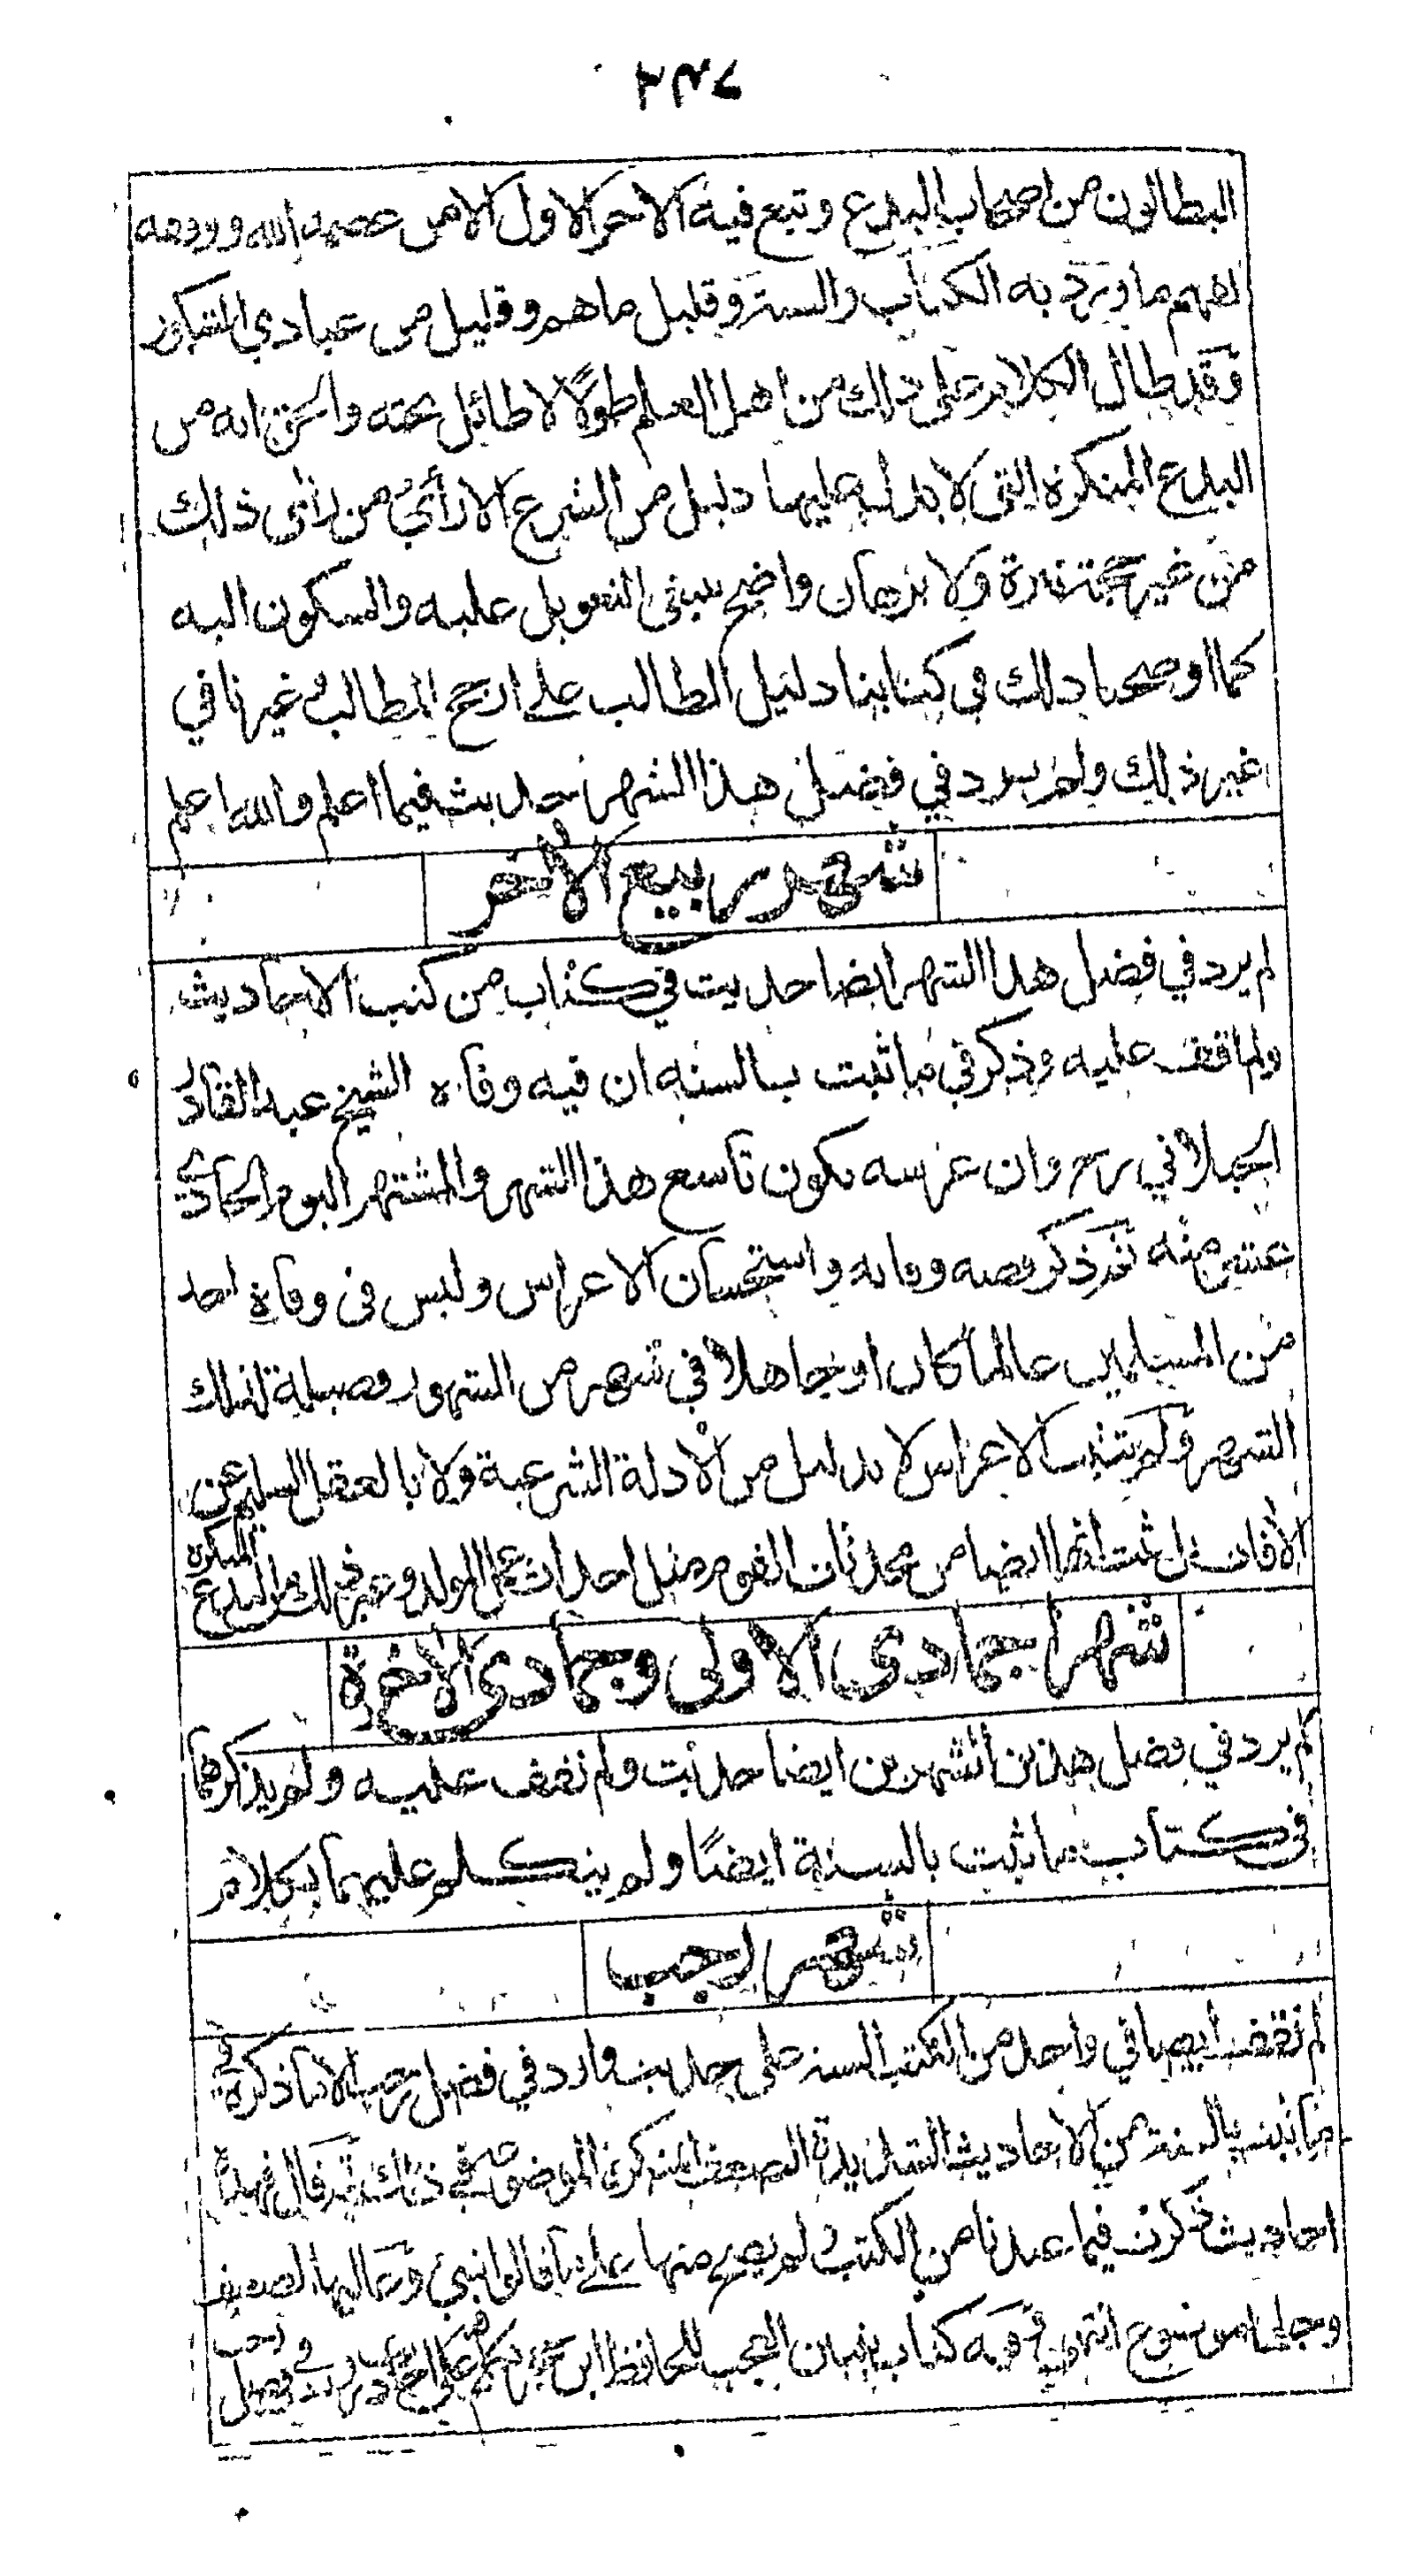 ٢٣٧
البطالون من اصحاب البدع وتبع فيه الآخر الاول الا من عصمه الله ووفقه
لفهم ما ورد به الكتاب والسنة وقليل ما هم وقليل من عبادي الشكور
وقد طال الكلام على ذلك من اهل العلم طولًا لا طائل تحته والحق انه من
البدع المنكرة التي لا يدل عليها دليل من الشرع الا رأيُ من رأى ذلك
من غير حجة نيرة ولا برهان واضح ينبغي التعويل عليه والسكون اليه
كما اوضحنا ذلك في كتابنا دليل الطالب على ارجح المطالب وغيرنا في
غير ذلك ولم يرد في فضل هذا الشهر حديث فيما اعلم والله اعلم
شهر ربيع الآخر
لم يرد في فضل هذا الشهر ايضا حديث في كتاب من كتب الاحاديث
ولم اقف عليه وذكر في ما ثبت بالسنه ان فيه وفاه الشيخ عبد القادر
الجيلاني رح وان عرسه يكون تاسع هذا الشهر والمشتهر اليوم الحادي
عشر منه ثم ذكر قصه وفاته واستحسان الاعراس وليس في وفاة احد
من المسلمين عالما كان او جاهلا في شهر من الشهور فضيلة لذلك
الشهر ولم يثبت الاعراس لا بدليل من الأدلة الشرعية ولا بالعقل السليم عن
الآفات بل ثبت انها ايضا من محدثات القوم مثل احداث عمل المولد وغير ذلك من البدع المنكرة
شهرا جمادى الاولى وجمادى الآخرة
لم يرد في فضل هذين الشهرين ايضا حديث ولم نقف عليه ولم يذكرهما
في كتاب ما ثبت بالسنة ايضًا ولم يتكلم عليهما بكلام
شهر رجب
لم نقف ايضا في واحد من الكتب الستة على حديث وارد في فضل رجب الا ما ذكره في
ما ثبت بالسنة من الاحاديث الضعيفة المنكرة الموضوعة في ذلك ثم قال فهذه
احاديث ذكرت فيما عندنا من الكتب ولم يصح منها على ما قالوا شيء وغاليها الضعيف
وجلها موضوع انتهى وفيه كتاب تبيان العجب للحافظ ابن حجر في فضل رجب